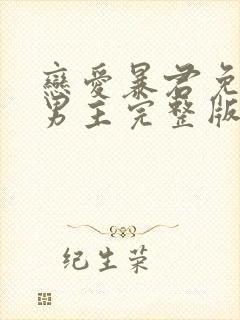 戀愛暴君免
男主完整版
纪生荣